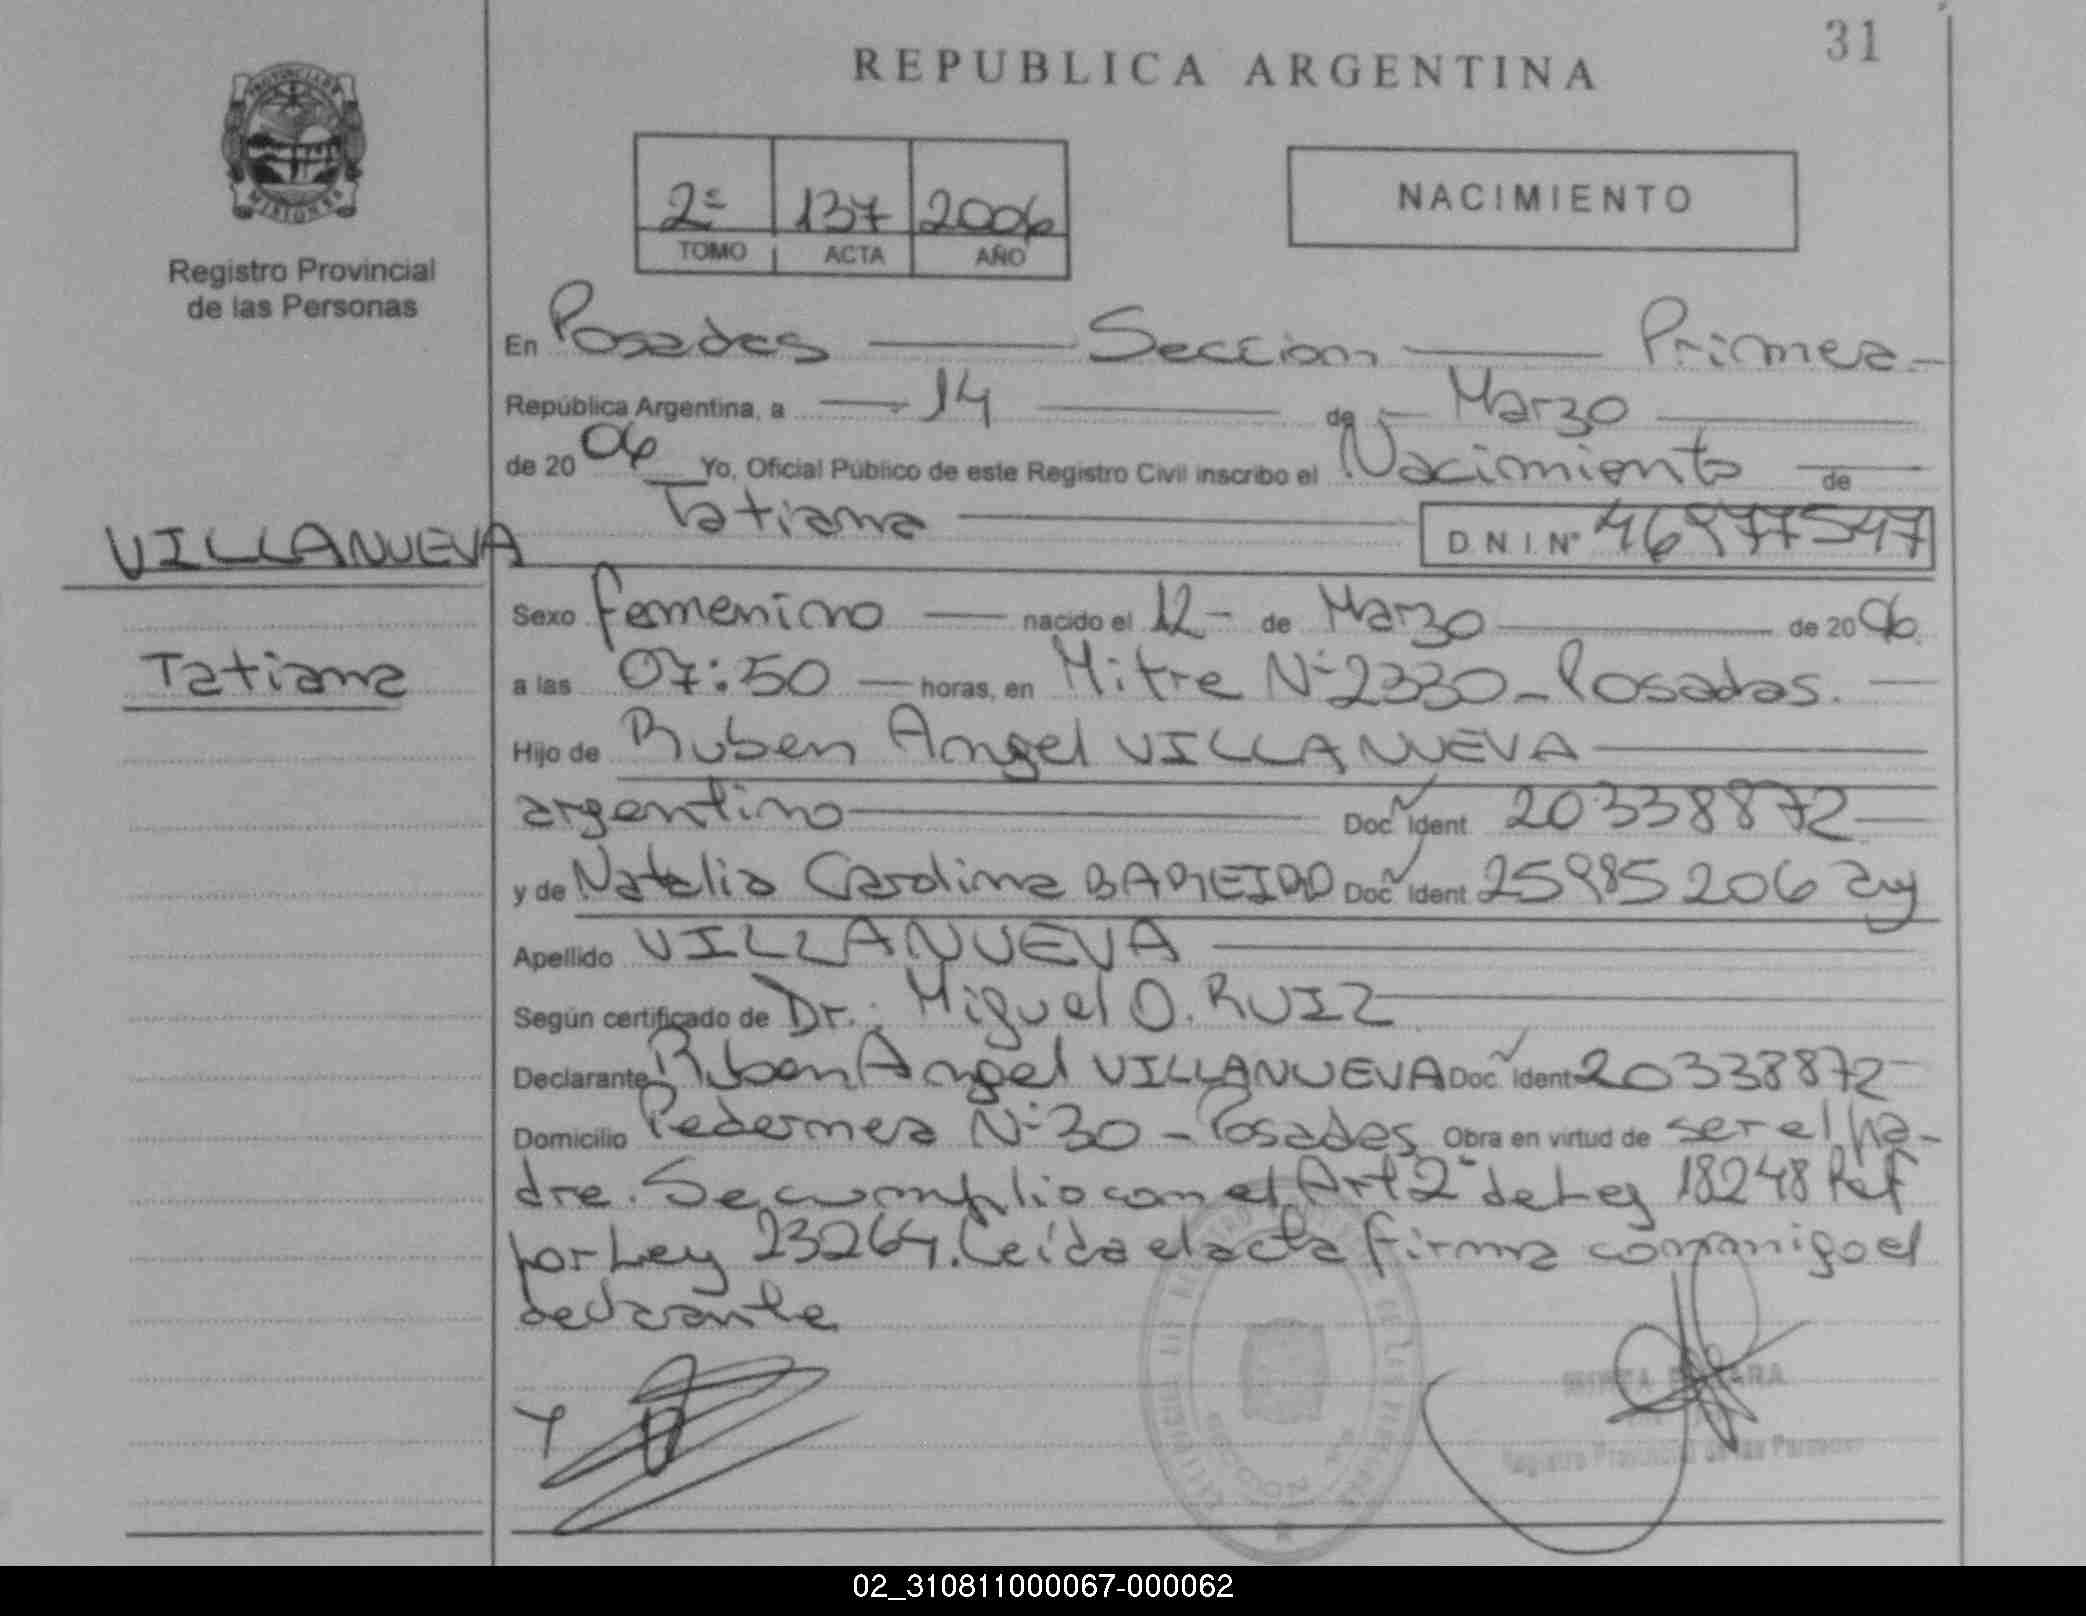 31
REPUBLICA ARGENTINA
NACIMIENTO
2º 137 2006
TOMO ACTA AÑO
MISIONES
Registro Provincial
de las Personas
En Posadas Seccion Primera
República Argentina, a 14 de Marzo
de 2006 Yo, Oficial Público de este Registro Civil inscribo el Nacimiento de
Tatiana D.N.I. Nº 46977547
VILLANUEVA
Tatiana
Sexo femenino nacido el 12 - de Marzo de 2006.
a las 07:50 horas, en Mitre Nº 2330 - Posadas.
Hijo de Ruben Angel VILLANUEVA
argentino Doc. Ident. 20338872
y de Natalia Carolina BAREIRO Doc. Ident. 25985206 arg
Apellido VILLANUEVA
Según certificado de Dr. Miguel O. RUIZ
Declarante Ruben Angel VILLANUEVA Doc. Ident. 20338872
Domicilio Pedernera Nº 30 - Posadas Obra en virtud de ser el pa-
dre. Se cumplio con el Art 2º de Ley 18248 Ref
por Ley 23264. Leída el acta firma conmigo el
declarante
Registro Provincial de las Personas
02_310811000067-000062